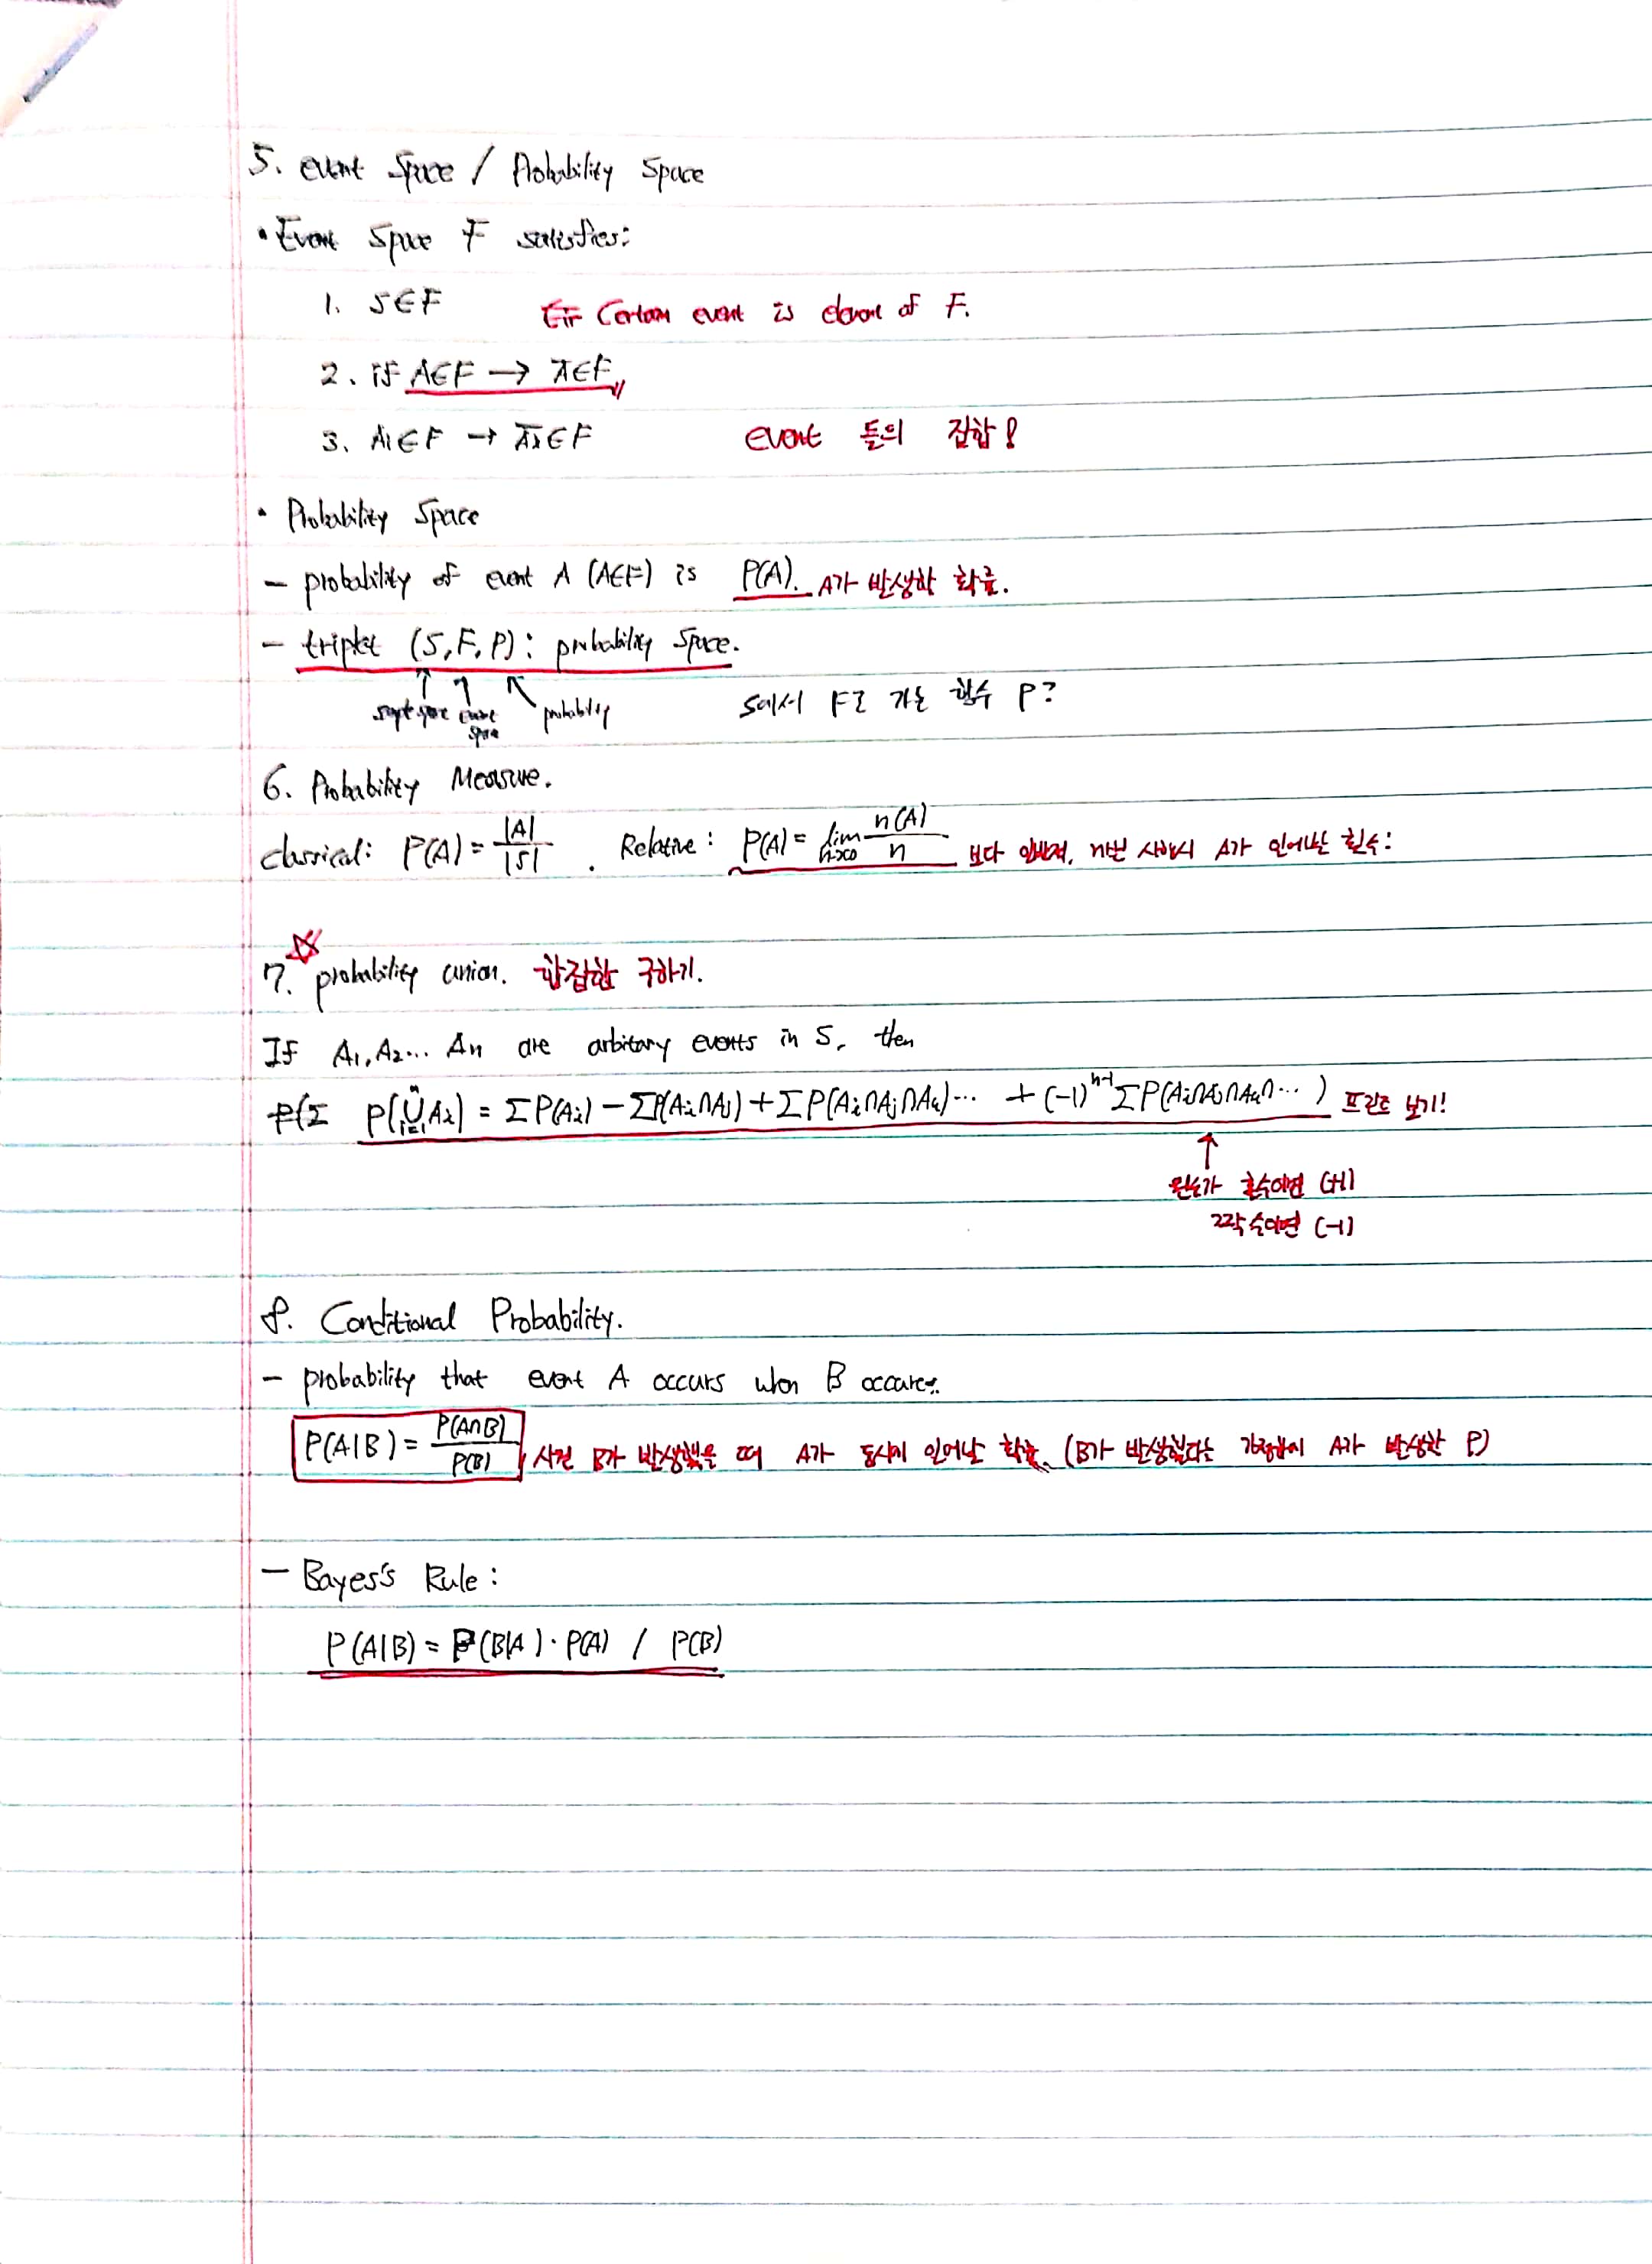 5. event Space / Probability Space
• Event Space F satisfies:
1. S∈F Certain event is element of F.
2. if A∈F → A̅∈F
3. Ai∈F → A̅i∈F event 들의 집합!
• Probability Space
– probability of event A (A∈F) is P(A). A가 발생할 확률.
– triplet (S, F, P) : probability space.
sample space event space probability S에서 F로 가는 함수 P?
6. Probability Measure.
classical: P(A) = |A| / |S| . Relative : P(A) = lim n→∞ n(A) / n 보다 일반적, n번 시행시 A가 일어나는 횟수:
☆
7. probability union. 합집합 구하기.
If A₁, A₂... An are arbitary events in S, then
P(⋃ⁿᵢ₌₁ Ai) = ΣP(Ai) − ΣP(Ai∩Aj) + ΣP(Ai∩Aj∩Ak)... + (−1)ⁿ⁻¹ ΣP(Ai∩Aj∩Ak∩...) 프린트 보기!
↑
원소가 홀수이면 (+1)
짝수이면 (−1)
8. Conditional Probability.
– probability that event A occurs when B occures.
P(A|B) = P(A∩B) / P(B) , 사건 B가 발생했을 때 A가 동시에 일어날 확률. (B가 발생했다는 가정하에 A가 발생한 P)
– Bayes's Rule :
P(A|B) = P(B|A) · P(A) / P(B)